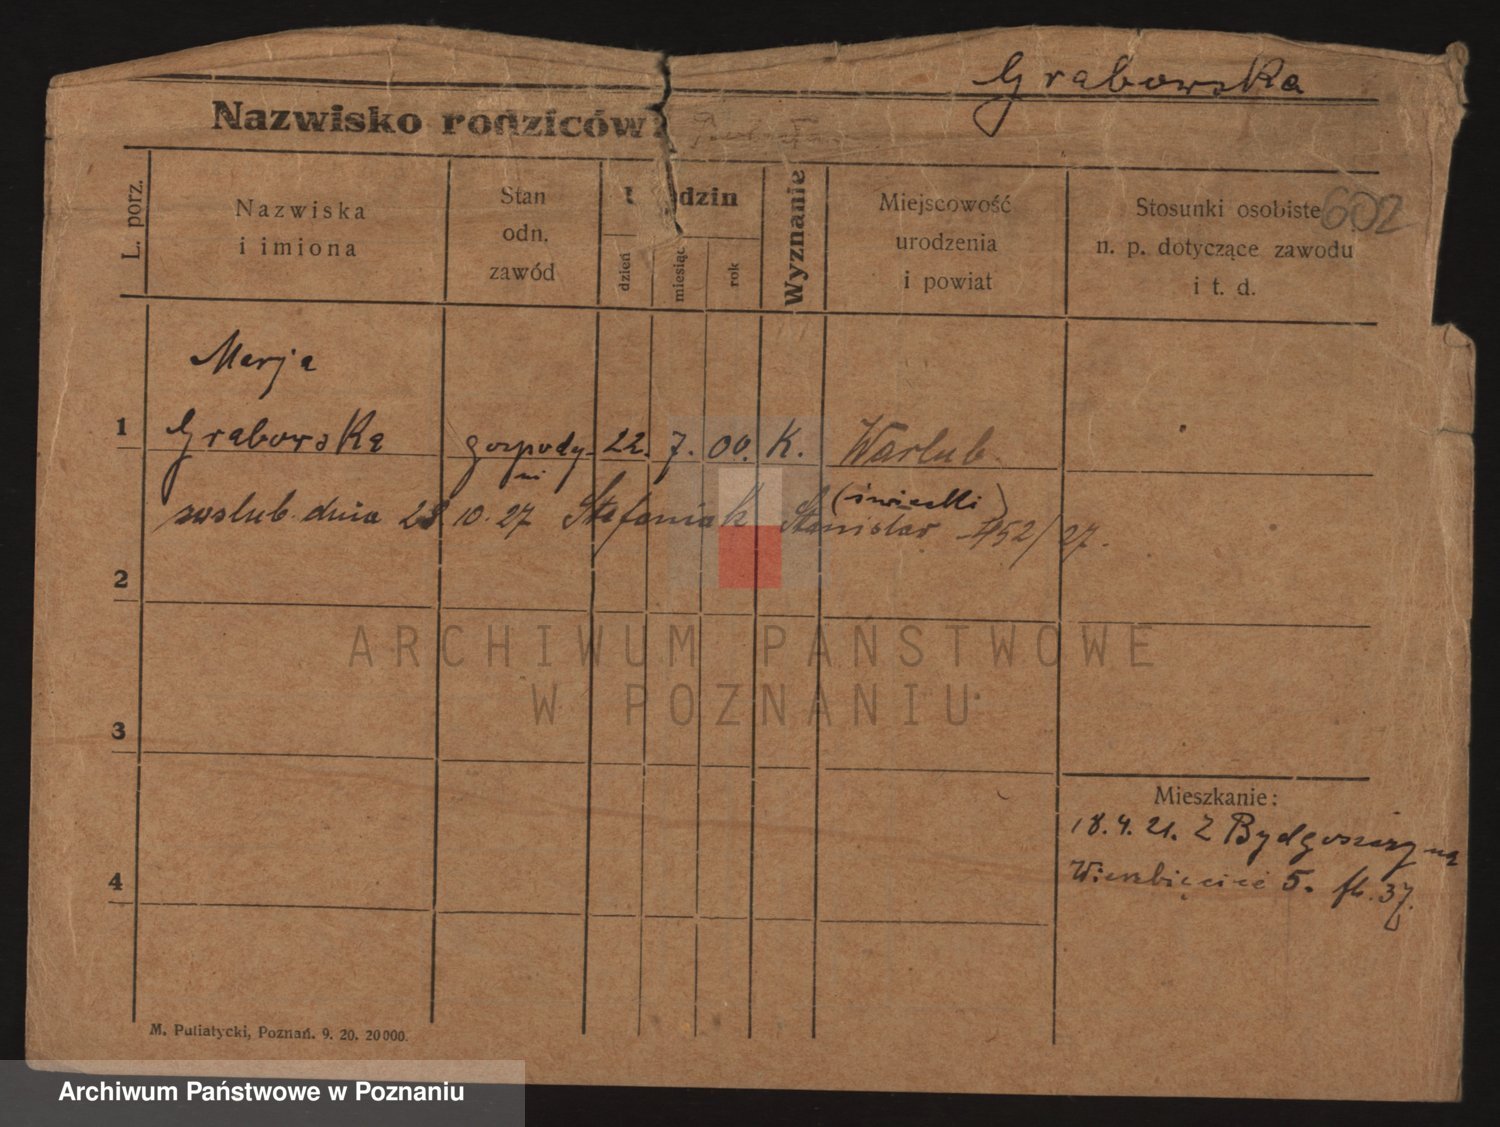 Grabowska
Nazwisko rodziców:
L. porz.
Nazwiska
i imiona
Stan
odn.
zawód
dzin
dzień
miesiąc
rok
Wyznanie
Miejscowość
urodzenia
i powiat
Stosunki osobiste
n. p. dotyczące zawodu
i t. d.
602
Marja
1 Grabowska gospody- 22. 7. 00. K. Warlub
ni
zaślub. dnia 28 10. 27 Stefaniak Stanisław 452/27.
2
3
4
Mieszkanie:
18.4.21. Z Bydgoszczy na
Wierzbięcice 5. fb. 37.
M. Putiatycki, Poznań. 9. 20. 20000.
ARCHIWUM PAŃSTWOWE
W POZNANIU
Archiwum Państwowe w Poznaniu